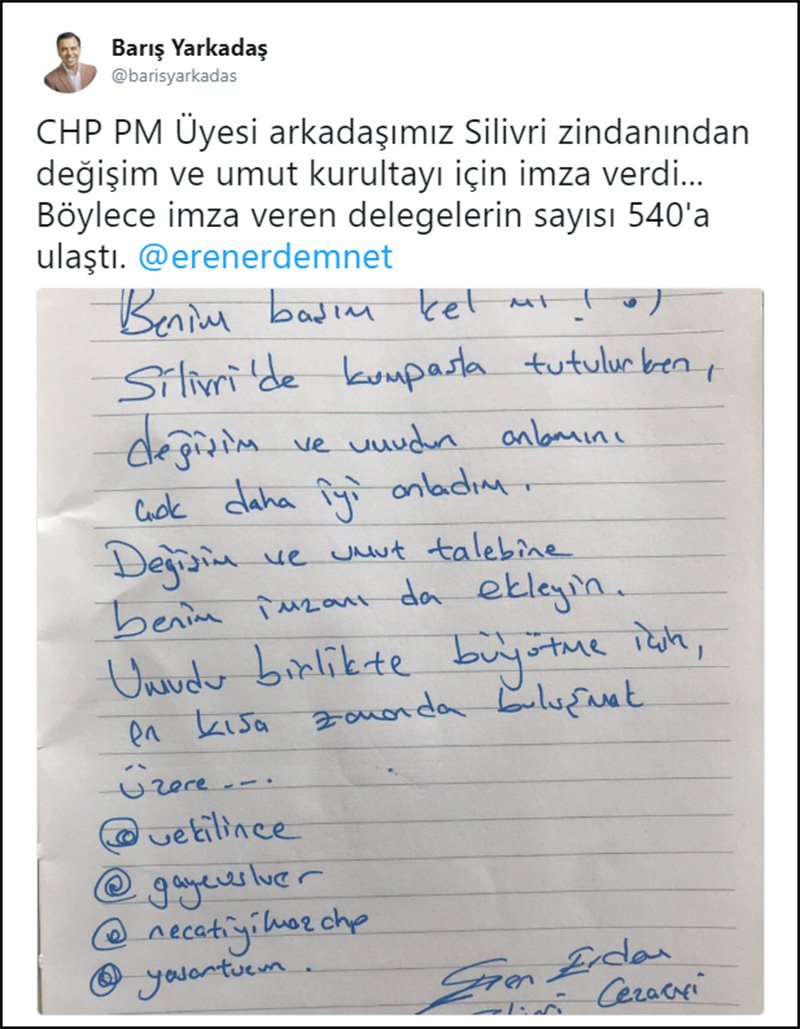 Barış Yarkadaş
@barisyarkadas
CHP PM Üyesi arkadaşımız Silivri zindanından
değişim ve umut kurultayı için imza verdi...
Böylece imza veren delegelerin sayısı 540'a
ulaştı. @erenerdemnet
Benim başım kel mi ! :)
Silivri'de kumpasla tutulurken,
değişim ve umudun anlamını
çok daha iyi anladım.
Değişim ve umut talebine
benim imzamı da ekleyin.
Umudu birlikte büyütme için,
en kısa zamanda buluşmak
üzere ---.
@vekilince
@gayeusluer
@necatiyilmazchp
@yasartuzun.
Eren Erdem
Silivri Cezaevi